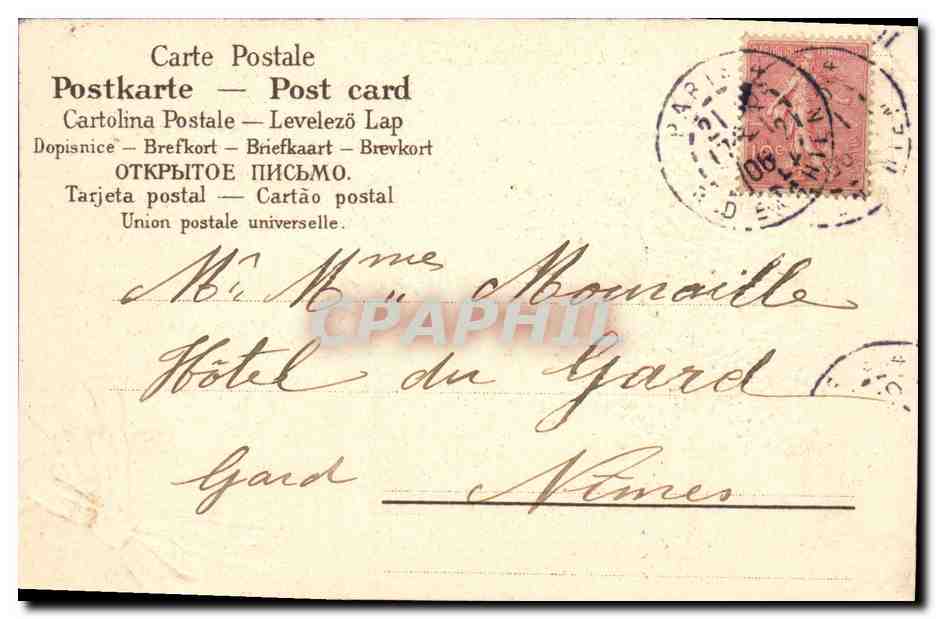 Carte Postale
Postkarte — Post card
Cartolina Postale – Levelező Lap
Dopisnice – Brefkort – Briefkaart – Brevkort
ОТКРЫТОЕ ПИСЬМО.
Tarjeta postal — Cartão postal
Union postale universelle.
PARIS
21
06
10c
Mr. Mmes „ Mouraille
CPAPHIL
Hôtel du Gard
Gard Nîmes